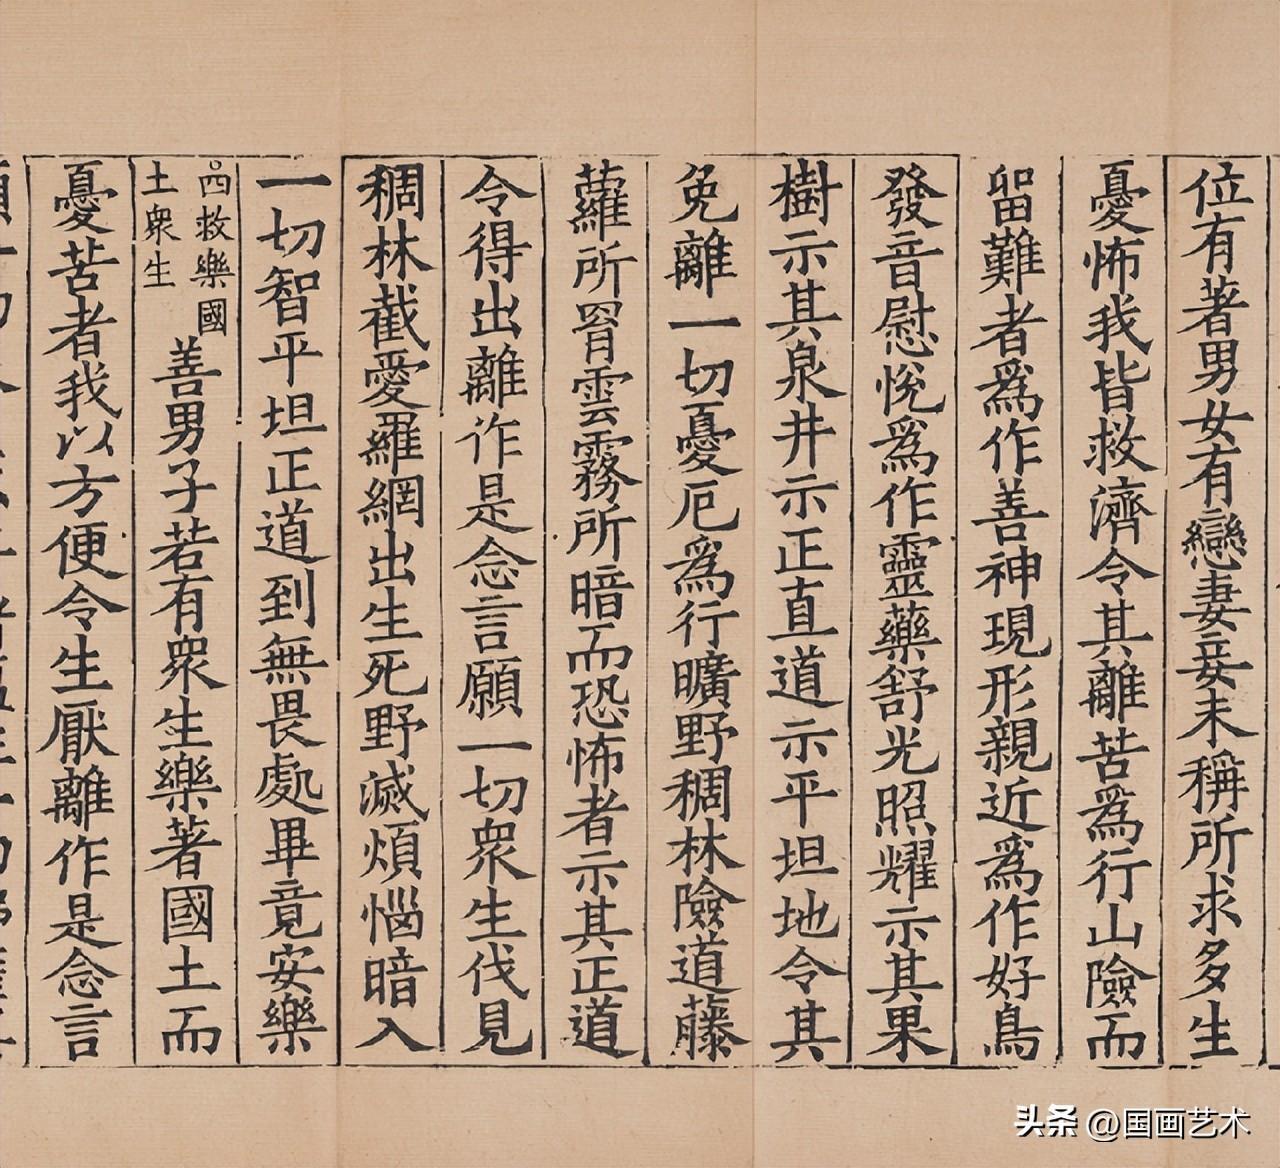 位有著男女有戀妻妾未稱所求多生
憂怖我皆救濟令其離苦爲行山險而
留難者爲作善神現形親近爲作好鳥
發音慰悅爲作靈藥舒光照耀示其果
樹示其泉井示正直道示平坦地令其
免離一切憂厄爲行曠野稠林險道藤
蘿所罥雲霧所暗而恐怖者示其正道
令得出離作是念言願一切衆生伐見
稠林截愛羅網出生死野滅煩惱暗入
一切智平坦正道到無畏處畢竟安樂
四救樂國
土衆生
善男子若有衆生樂著國土而
憂苦者我以方便令生厭離作是念言
头条 @国画艺术